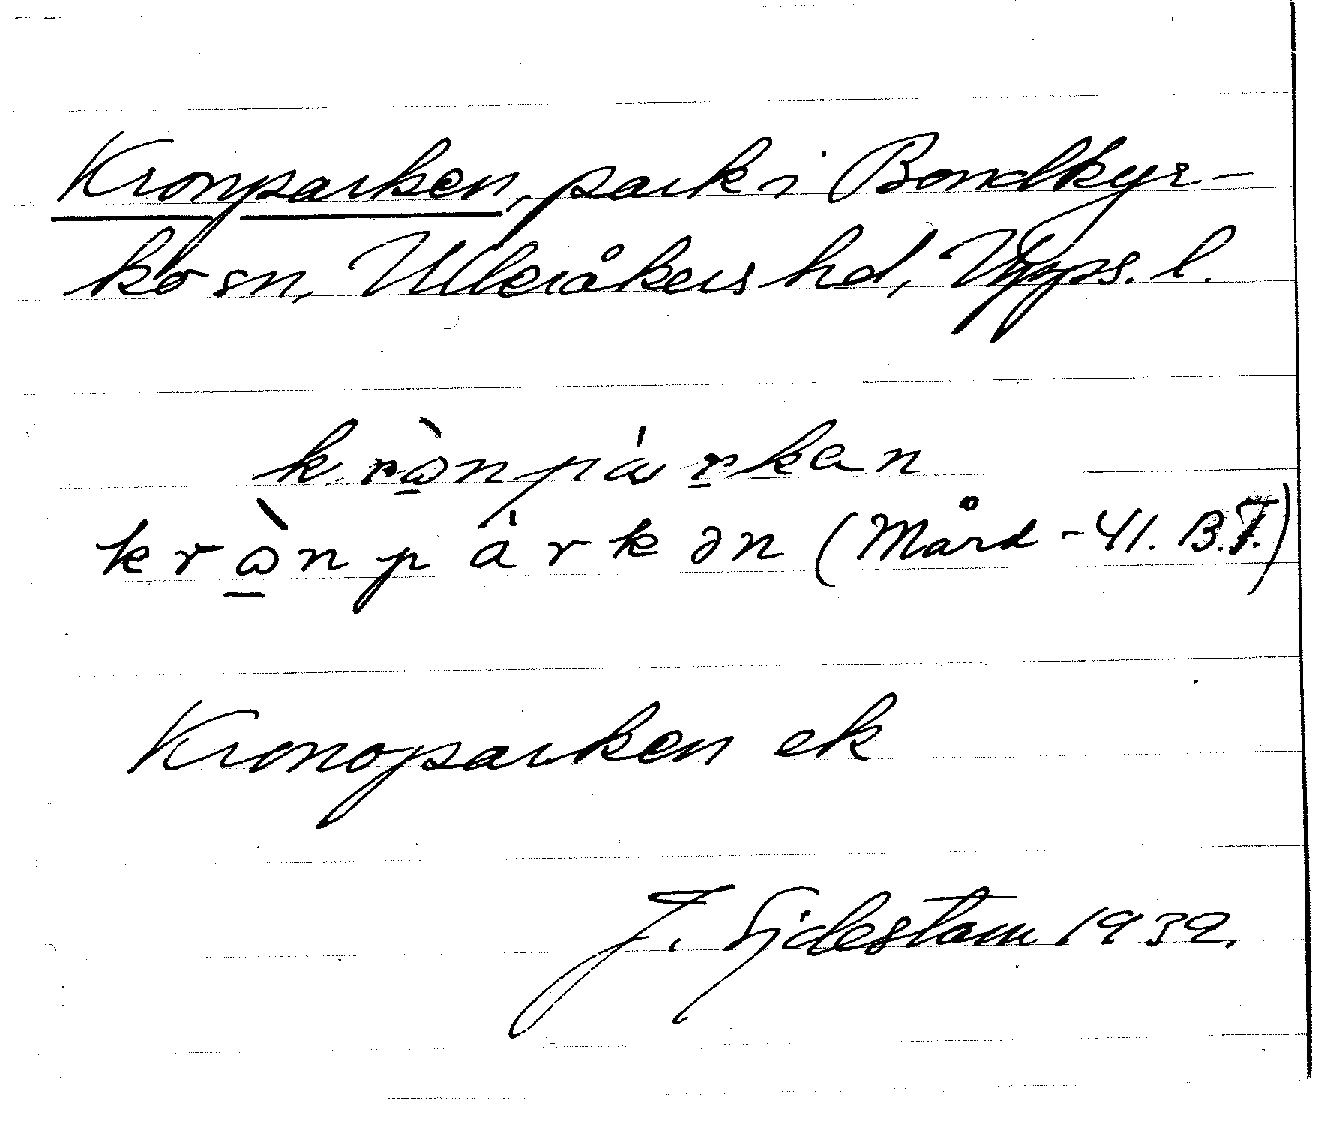 Kronparken, park i Bondkyr-
ko sn, Ulleråkers hd, Upps. l.
krὼ̲npárkan
krὼ̲npárkən (Mård -41. B.T.)
Kronoparken ek
J. Sjdestam 1932.